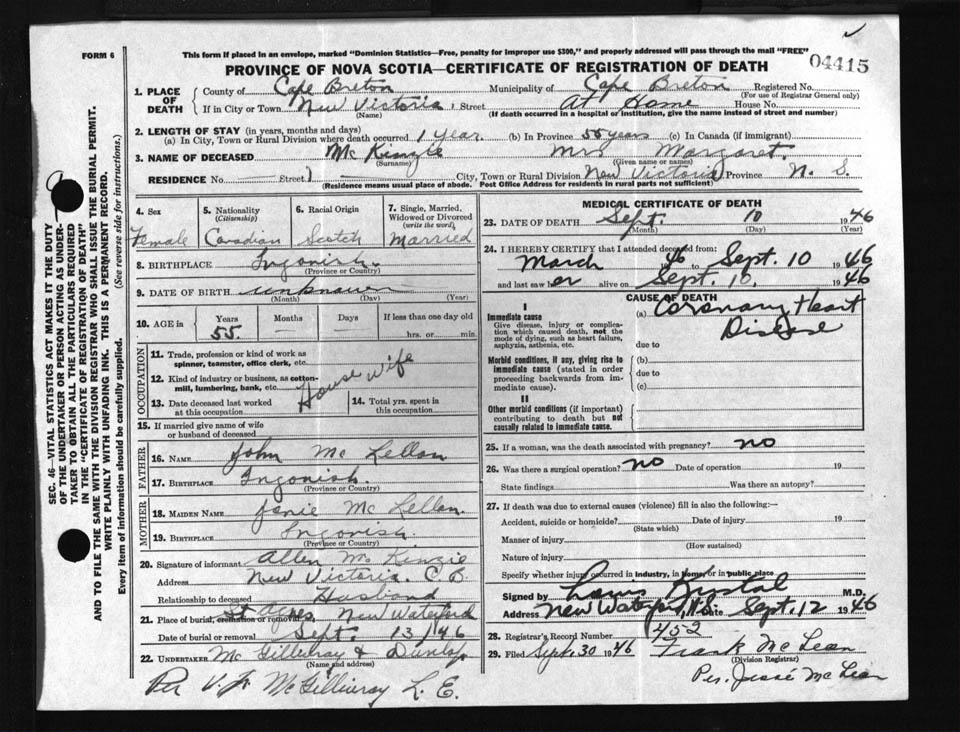 FORM 6
This form if placed in an envelope, marked "Dominion Statistics—Free, penalty for improper use $300," and properly addressed will pass through the mail "FREE"
04415
PROVINCE OF NOVA SCOTIA—CERTIFICATE OF REGISTRATION OF DEATH
1. PLACE OF DEATH
County of Cape Breton Municipality of Cape Breton Registered No.
(For use of Registrar General only)
If in City or Town New Victoria, Street At Home House No.
(Name) (If death occurred in a hospital or institution, give the name instead of street and number)
2. LENGTH OF STAY (in years, months and days)
(a) In City, Town or Rural Division where death occurred 1 year. (b) In Province 55 years (c) In Canada (if immigrant)
3. NAME OF DECEASED Mc Kinzie Mrs Margaret.
(Surname) (Given name or names)
RESIDENCE No. Street City, Town or Rural Division New Victoria Province N. S.
(Residence means usual place of abode. Post Office Address for residents in rural parts not sufficient)
SEC. 46—VITAL STATISTICS ACT MAKES IT THE DUTY
OF THE UNDERTAKER OR PERSON ACTING AS UNDER-
TAKER TO OBTAIN ALL THE PARTICULARS REQUIRED
IN THE "CERTIFICATE OF REGISTRATION OF DEATH"
AND TO FILE THE SAME WITH THE DIVISION REGISTRAR WHO SHALL ISSUE THE BURIAL PERMIT.
WRITE PLAINLY WITH UNFADING INK. THIS IS A PERMANENT RECORD.
Every item of information should be carefully supplied. (See reverse side for instructions.)
4. Sex
Female
5. Nationality
(Citizenship)
Canadian
6. Racial Origin
Scotch
7. Single, Married,
Widowed or Divorced
(write the word)
Married
8. BIRTHPLACE Ingonish.
(Province or Country)
9. DATE OF BIRTH unknown
(Month) (Day) (Year)
10. AGE in Years Months Days If less than one day old
55. hrs. or min.
OCCUPATION
11. Trade, profession or kind of work as
spinner, teamster, office clerk, etc.
12. Kind of industry or business, as cotton-
mill, lumbering, bank, etc.
House wife
13. Date deceased last worked
at this occupation
14. Total yrs. spent in
this occupation
15. If married give name of wife
or husband of deceased
FATHER
16. NAME John Mc Lellan
17. BIRTHPLACE Ingonish.
(Province or Country)
MOTHER
18. MAIDEN NAME Janie Mc Lellan.
19. BIRTHPLACE Ingonish.
(Province or Country)
20. Signature of informant Allen Mc Kinzie
Address New Victoria. C.B.
Relationship to deceased Husband
21. Place of burial, cremation or removal St Agnes New Waterford
Date of burial or removal Sept. 13/46
22. UNDERTAKER Mc Gillivray & Dunlop
(Name and address)
Per V. J. McGillivray L. E.
MEDICAL CERTIFICATE OF DEATH
23. DATE OF DEATH Sept. 10 1946
(Month) (Day) (Year)
24. I HEREBY CERTIFY that I attended deceased from:
March 1946 to Sept. 10 1946
and last saw her alive on Sept. 10. 1946
CAUSE OF DEATH
I
Immediate cause
Give disease, injury or complica-
tion which caused death, not the
mode of dying, such as heart failure,
asphyxia, asthenia, etc.
(a) Coronary Heart
Disease
due to
Morbid conditions, if any, giving rise to
immediate cause (stated in order
proceeding backwards from im-
mediate cause).
(b)
due to
(c)
II
Other morbid conditions (if important)
contributing to death but not
causally related to immediate cause.
25. If a woman, was the death associated with pregnancy? no
26. Was there a surgical operation? no Date of operation 19
State findings Was there an autopsy?
27. If death was due to external causes (violence) fill in also the following:—
Accident, suicide or homicide? Date of injury 19
(State which)
Manner of injury
(How sustained)
Nature of injury
Specify whether injury occurred in industry, in home, or in public place
Signed by Louis Kristal M.D.
Address New Waterford, N.S. Date Sept. 12 1946
28. Registrar's Record Number 452
29. Filed Sept 30 1946 Frank Mc Lean
(Division Registrar)
Per. Jessie Mc Lean